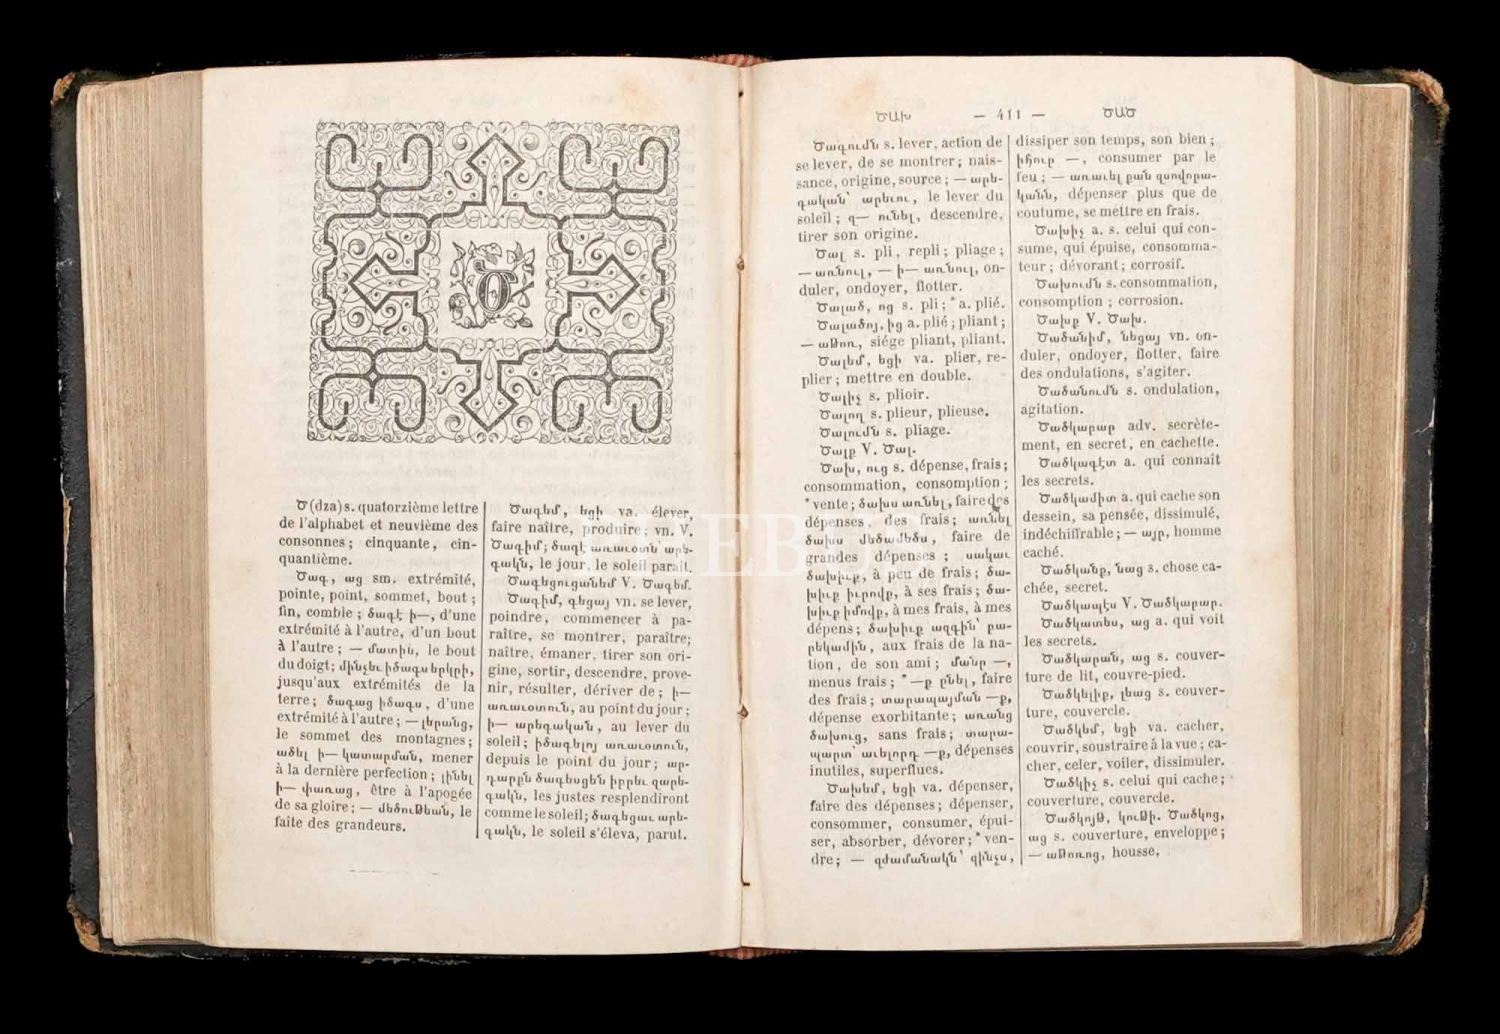 Ծ
Ծ (dza) s. quatorzième lettre
de l'alphabet et neuvième des
consonnes; cinquante, cin-
quantième.
Ծագ, աց sm. extrémité,
pointe, point, sommet, bout;
fin, comble; ծագէ ի—, d'une
extrémité à l'autre, d'un bout
à l'autre; — մատին, le bout
du doigt; մինչեւ իծագս երկրի,
jusqu'aux extrémités de la
terre; ծագաց իծագս, d'une
extrémité à l'autre; — լերանց,
le sommet des montagnes;
ածել ի— կատարման, mener
à la dernière perfection; լինել
ի— փառաց, être à l'apogée
de sa gloire; — մեծութեան, le
faîte des grandeurs.
Ծագեմ, եցի va. élever,
faire naître, produire; vn. V.
Ծագիմ; ծագէ առաւօտն արե-
գակն, le jour, le soleil paraît.
Ծագեցուցանեմ V. Ծագեմ.
Ծագիմ, գեցայ vn. se lever,
poindre, commencer à pa-
raître, se montrer, paraître;
naître, émaner, tirer son ori-
gine, sortir, descendre, prove-
nir, résulter, dériver de; ի—
առաւօտուն, au point du jour;
ի— արեգական, au lever du
soleil; իծագելոյ առաւօտուն,
depuis le point du jour; ար-
դարքն ծագեսցեն իբրեւ զարե-
գակն, les justes resplendiront
comme le soleil; ծագեցաւ արե-
գակն, le soleil s'éleva, parut.
ԾԱԽ — 411 — ԾԱԾ
Ծագումն s. lever, action de
se lever, de se montrer; nais-
sance, origine, source; — արե-
գական՝ արեւու, le lever du
soleil; զ— ունել, descendre,
tirer son origine.
Ծալ s. pli, repli; pliage;
— առնուլ, — ի— առնուլ, on-
duler, ondoyer, flotter.
Ծալած, ոց s. pli; *a. plié.
Ծալածոյ, ից a. plié; pliant;
— աթոռ, siége pliant, pliant.
Ծալեմ, եցի va. plier, re-
plier; mettre en double.
Ծալիչ s. plioir.
Ծալող s. plieur, plieuse.
Ծալումն s. pliage.
Ծալք V. Ծալ.
Ծախ, ուց s. dépense, frais;
consommation, consomption;
*vente; ծախս առնել, faire des
dépenses, des frais; առնել
ծախս մեծամեծս, faire de
grandes dépenses; սակաւ
ծախիւք, à peu de frais; ծա-
խիւք իւրովք, à ses frais; ծա-
խիւք իմովք, à mes frais, à mes
dépens; ծախիւք ազգին՝ բա-
րեկամին, aux frais de la na-
tion, de son ami; մանր —,
menus frais; *—ք ընել, faire
des frais; տարապայման —ք,
dépense exorbitante; առանց
ծախուց, sans frais; տարա-
պարտ՝ աւելորդ —ք, dépenses
inutiles, superflues.
Ծախեմ, եցի va. dépenser,
faire des dépenses; dépenser,
consommer, consumer, épui-
ser, absorber, dévorer; *ven-
dre; — զժամանակն՝ զինչս,
dissiper son temps, son bien;
իհուր —, consumer par le
feu; — առաւել քան զսովորա-
կանն, dépenser plus que de
coutume, se mettre en frais.
Ծախիչ a. s. celui qui con-
sume, qui épuise, consomma-
teur; dévorant; corrosif.
Ծախումն s. consommation,
consomption; corrosion.
Ծախք V. Ծախ.
Ծածանիմ, նեցայ vn. on-
duler, ondoyer, flotter, faire
des ondulations, s'agiter.
Ծածանումն s. ondulation,
agitation.
Ծածկաբար adv. secrète-
ment, en secret, en cachette.
Ծածկագէտ a. qui connait
les secrets.
Ծածկամիտ a. qui cache son
dessein, sa pensée, dissimulé,
indéchiffrable; — այր, homme
caché.
Ծածկանք, նաց s. chose ca-
chée, secret.
Ծածկապէս V. Ծածկաբար.
Ծածկատես, աց a. qui voit
les secrets.
Ծածկարան, աց s. couver-
ture de lit, couvre-pied.
Ծածկելիք, լեաց s. couver-
ture, couvercle.
Ծածկեմ, եցի va. cacher,
couvrir, soustraire à la vue; ca-
cher, celer, voiler, dissimuler.
Ծածկիչ s. celui qui cache;
couverture, couvercle.
Ծածկոյթ, կութի. Ծածկոց,
աց s. couverture, enveloppe;
— աթոռոց, housse,